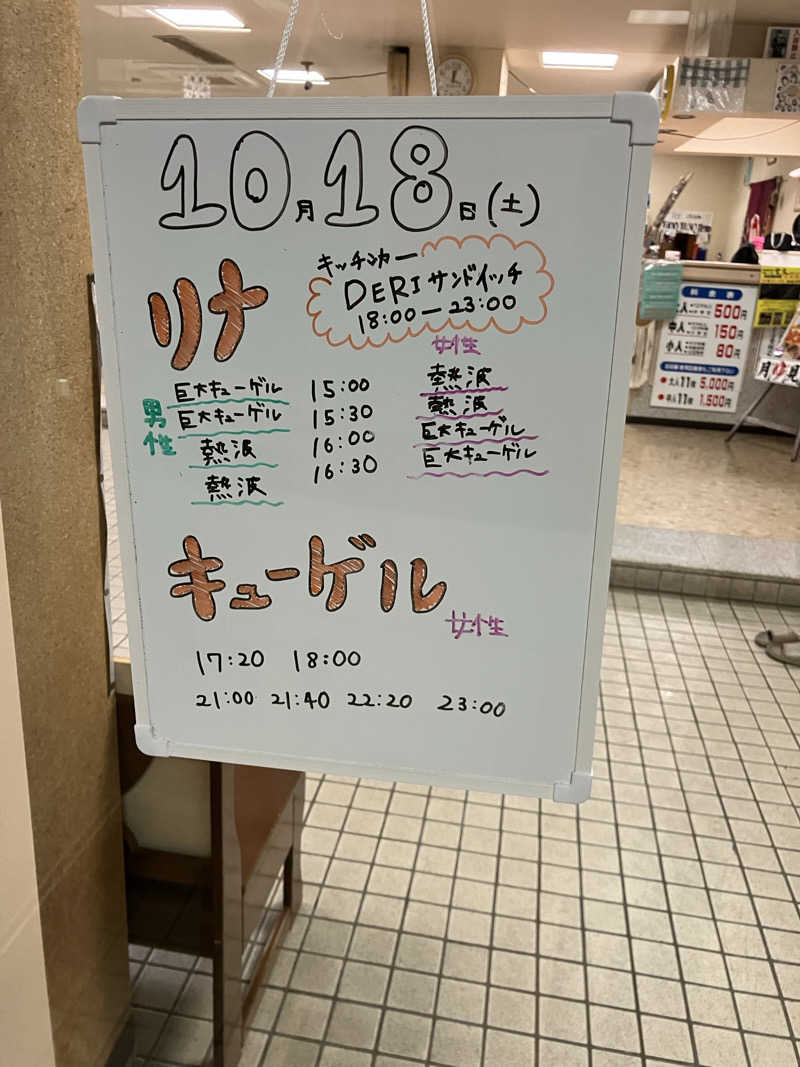 10月18日(土)
キッチンカー
DERIサンドイッチ
18:00ー23:00
リナ
女性
男性
巨大キューゲル 15:00 熱波
巨大キューゲル 15:30 熱波
熱波 16:00 巨大キューゲル
熱波 16:30 巨大キューゲル
キューゲル
女性
17:20 18:00
21:00 21:40 22:20 23:00
料金表
500円
中人 150円
小人 80円
大人11枚 5,000円
1,500円